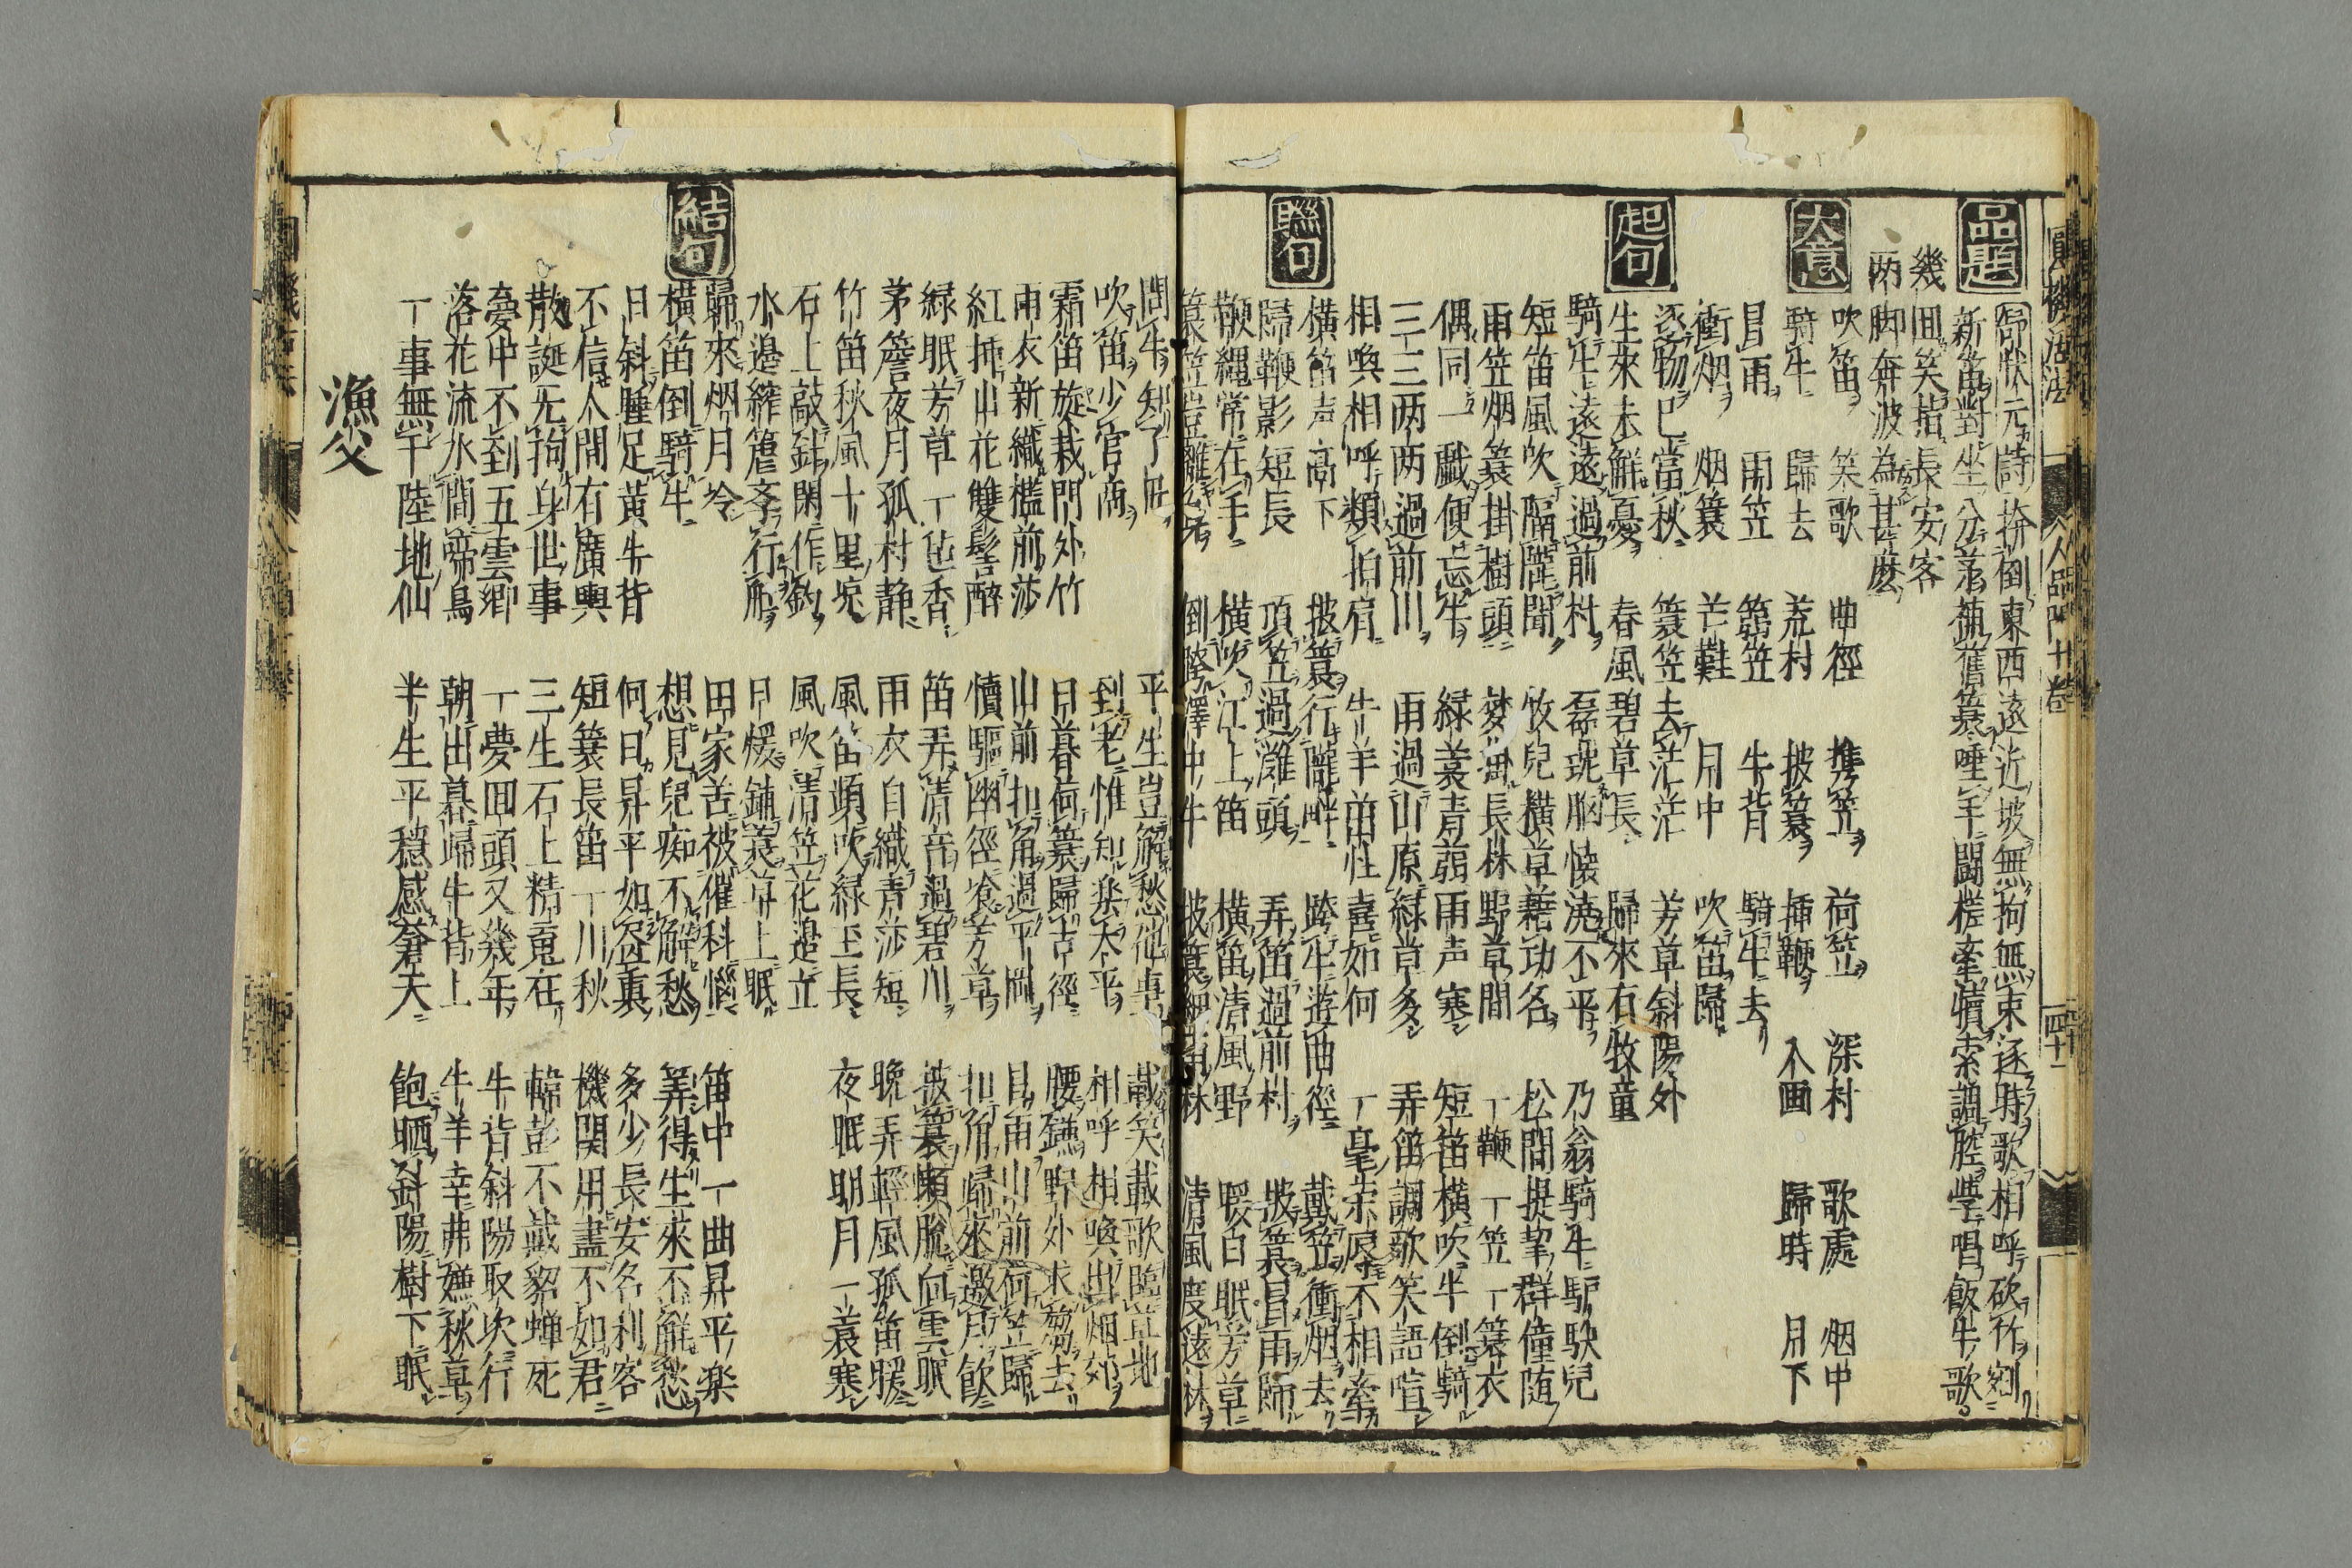 品題
舒状元詩 拚倒東西遠近坡無拘無束逐時歌相呼砍竹剜
新笛對坐分茅補舊簑唾手鬪槎牽犢索調腔學唱飯牛歌
幾回笑指長安客
両脚奔波為甚麼
大意
吹笛 笑歌 曲徑 携笠 荷笠 深村 歌處 烟中
騎牛 歸去 荒村 披簑 揷鞭 入画 歸時 月下
冒雨 雨笠 蒻笠 牛背 騎牛去
衝烟 烟簑 芒鞋 月中 吹笛歸
起句
逐物已當秋 簑笠去茫茫 芳草斜陽外
生來未解憂 春風碧草長 歸來有牧童
騎牛遠遠過前村 磊磈胸懐澆不平 乃翁騎牛馿馱兒
短笛風吹隔隴聞 牧兒横草藉功名 松間提挈群僮随
雨笠烟簑掛樹頭 夢濃長林野草間 一鞭一笠一簑衣
偶同一戯便忘牛 緑簑青蒻雨声寒 短笛横吹牛倒騎
三三両両過前川 雨過山原緑草多 弄笛調歌笑語喧
相喚相呼類拍肩 牛羊茁壮喜如何 一毫栄辱不相牽
聯句
横笛声高下 披簑行隴畔 跨牛遊曲徑 戴笠衝烟去
歸鞭影短長 頂笠過灘頭 弄笛過前村 披簑冒雨歸
鞭縄常在手 横吹江上笛 横笛清風野 暖白眠芳草
簑笠豈離身 倒騎澤中牛 披簑細雨林 清風度遠林
問牛知了 平生豈解愁他事 載笑載歌臨草地
吹笛少官商 到老惟知楽太平 相呼相喚出烟郊
霜笛旋栽門外竹 日暮荷簑歸古徑 腰鎌野外求芻去
雨衣新織檻前莎 山前扣角過平岡 冒雨山前荷笠歸
紅挿山花雙髻醉 犢驅幽徑飡芳草 扣角歸來邀月飲
緑眠芳草一毡香 笛弄清音過碧川 披簑懶脱向雲眠
茅簷夜月孤村静 雨衣自織青莎短 晚弄輕風孤笛暖
竹笛秋風十里 風笛頻吹緑玉長 夜眠明月一簑寒
石上敲針閑作釣 風吹清笠花邉立
水邉縡篷斉行船 日煖鋪簑草上眠
結句
歸來烟月冷 田家苦被催科惱 笛中一曲昇平楽
横笛倒騎牛 想見兒痴不解愁 筭得生來不解愁
日斜睡足黄牛背 何日昇平如 多少長安名利客
不信人間有廣輿 短簑長笛一川秋 機関用盡不如君
散誕无拘身世事 三生石上精䰟在 韓彭不戴貂蝉死
夢中不到五雲郷 一夢回頭又幾年 牛背斜陽取次行
落花流水間啼鳥 朝出暮歸牛背上 牛羊幸弗嫌秋草
一事無干陸地仙 半生平穏感蒼天 飽晒斜陽樹下眠
漁父
圓機活法 人品門十巻 四十一